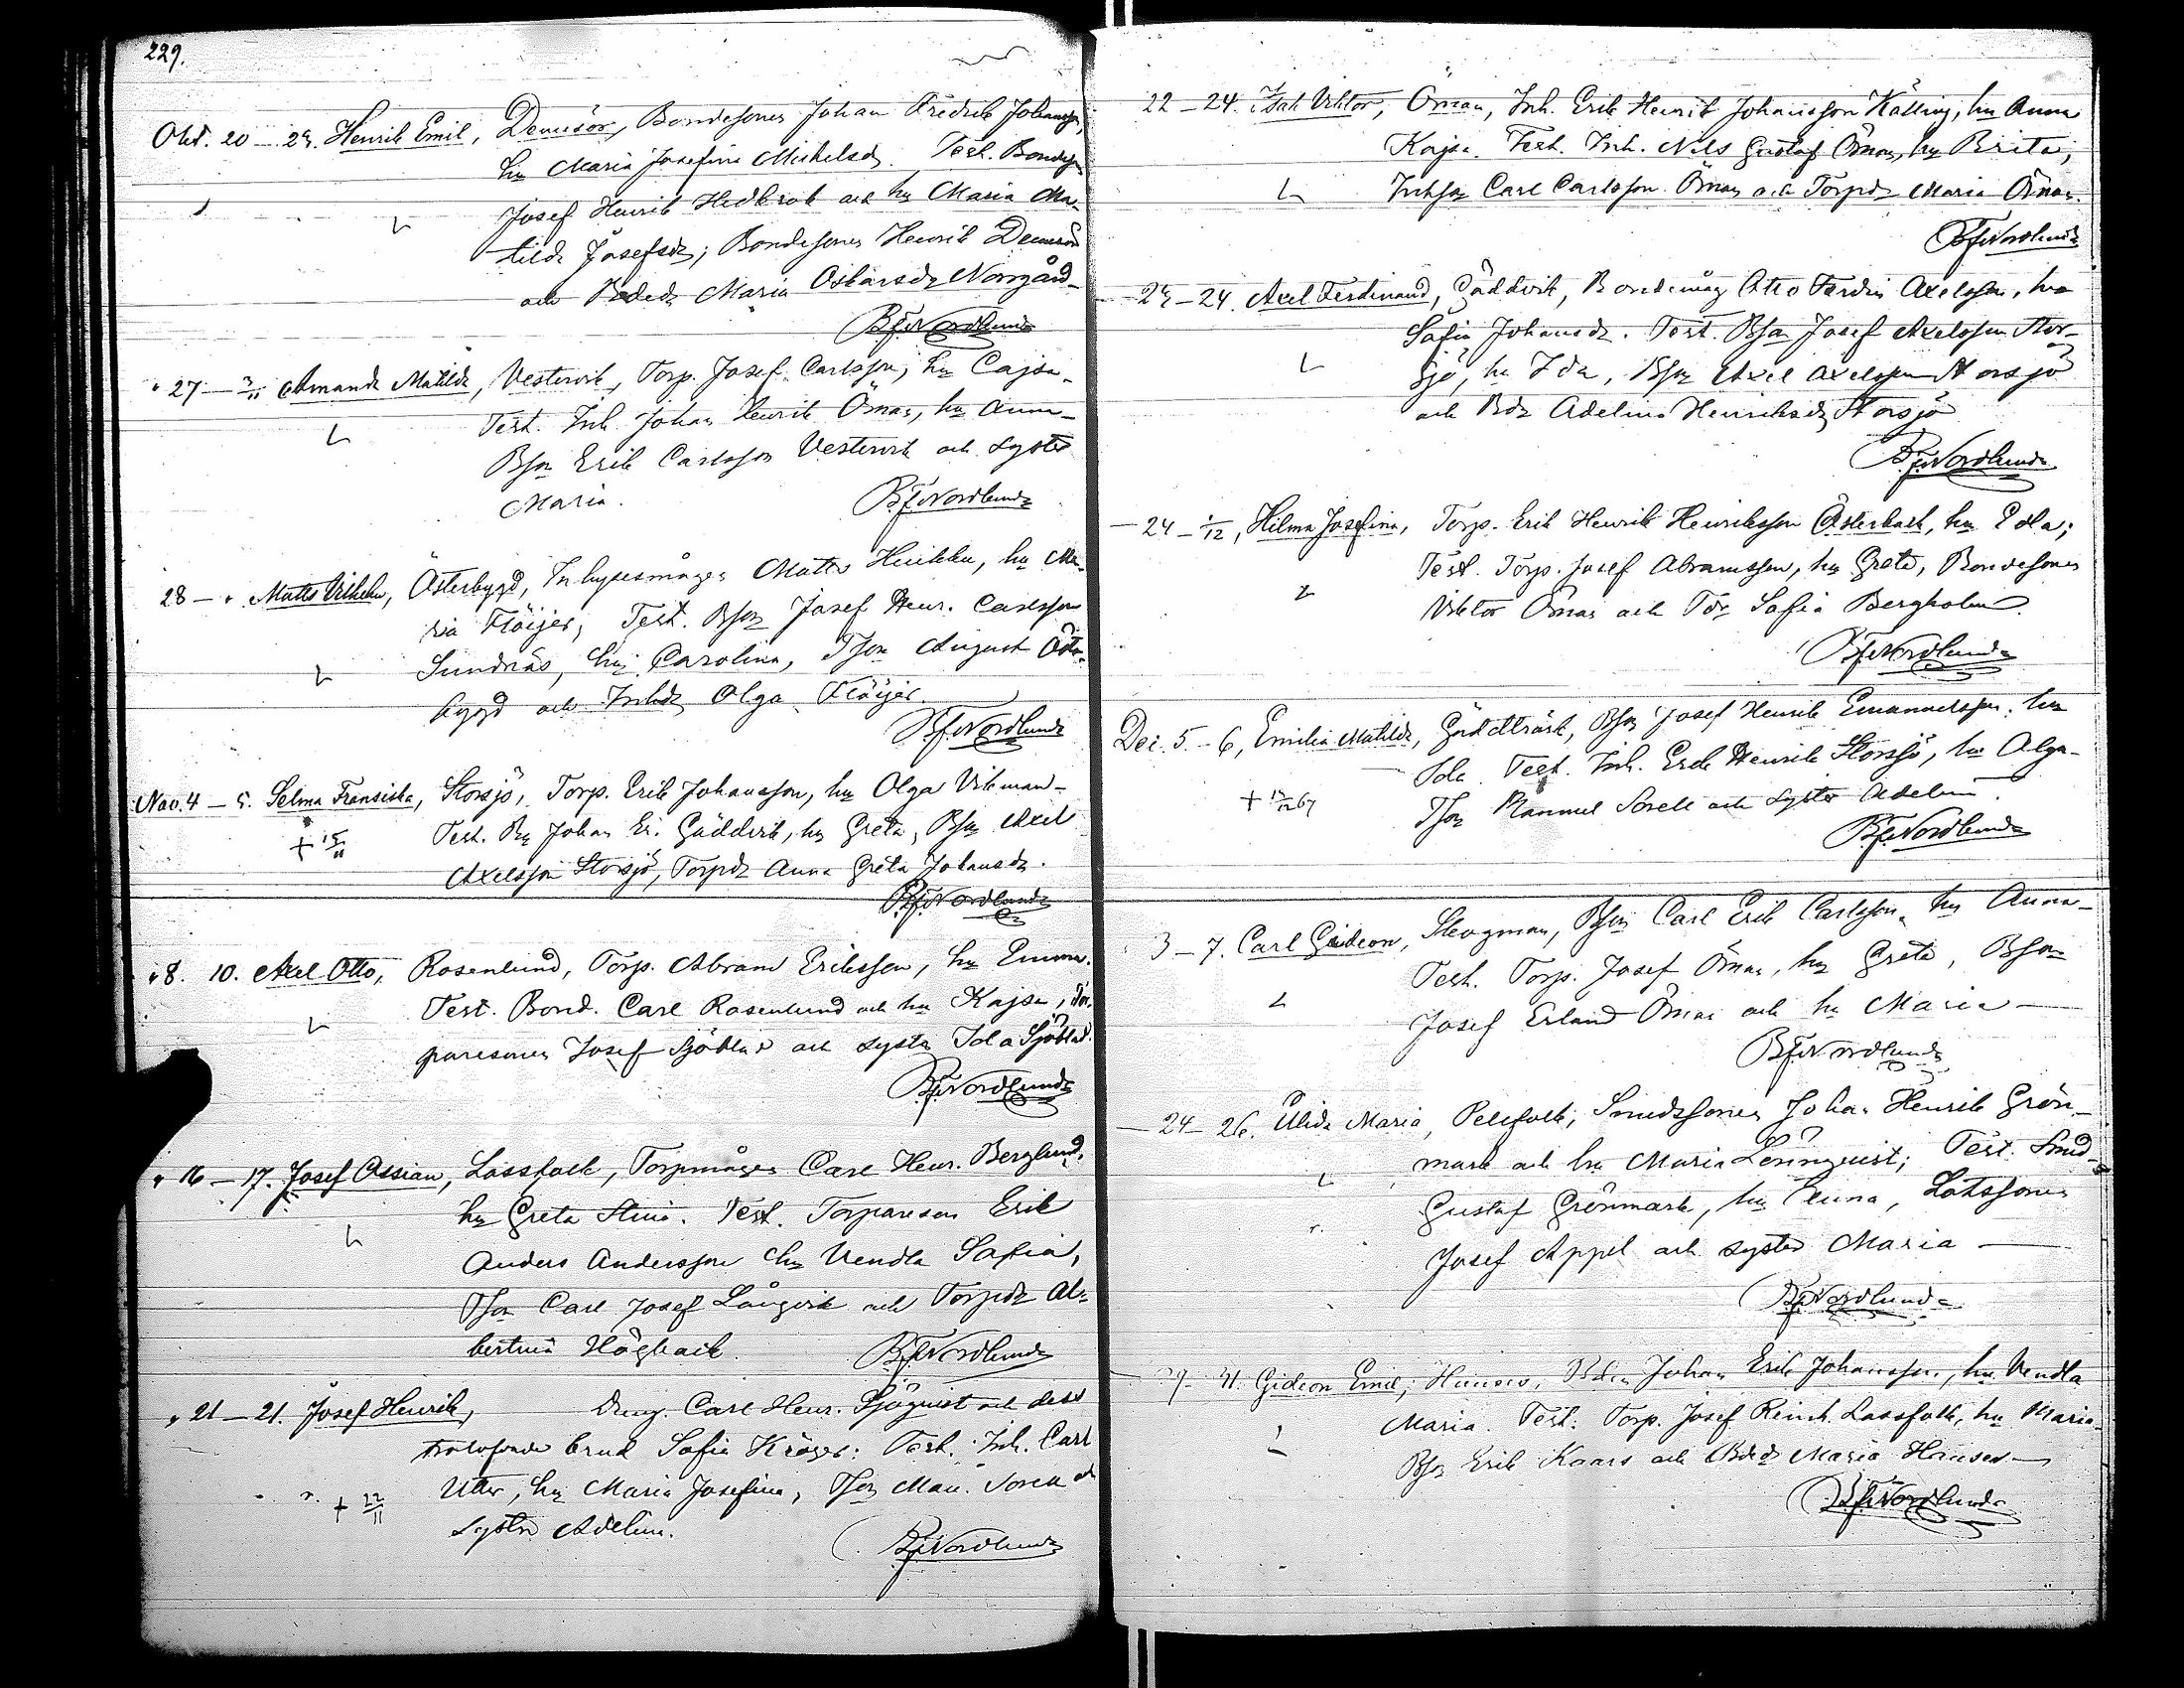 229.
Okt. 20 — 25. Henrik Emil, Demisör, Bondesonen Johan Fredrik Johansson,
hu Maria Josefina Michelsdr. Test. Bondeson
Josef Henrik Hedkrok och hu Maria Ma-
tilda Josefsdr; Bondesonen Henrik Demisör
och Bdedr Maria Oskarsdr Norrgård
BfNordlund
" 27 — 3/11 Amanda Matilda, Vestervik, Torp. Josef Carlsson, hu Cajsa.
Test. Inh. Johan Henrik Öman, hu Anna
Bson Erik Carlsson Vestervik och syster
Maria. BfNordlund
28 — " Matts Vilhelm, Österbygd, Inhysesmågen Matts Heikku, hu Ma-
ria Flöijer, Test. Bson Josef Henr. Carlsson
Sundnäs, hu Carolina, Tson August Öster-
bygd och Inhdr Olga Flöijer
BfNordlund
Nov. 4 — 5. Selma Fransiska, Storsjö, Torp. Erik Johansson, hu Olga Vikman
+ 15/11 Test. Bn Johan Er. Gäddvik, hu Greta, Bson Axel
Axelsson Storsjö, Torpdr Anna Greta Johansdr.
BfNordlund
" 8. 10. Axel Otto, Rosenlund, Torp. Abram Eriksson, hu Emma.
Test. Bond. Carl Rosenlund och hu Kajsa, Tor-
paresonen Josef Sjöblad och syster Ida Sjöblad.
BfNordlund
" 16 — 17. Josef Ossian, Lassfolk, Torpmågen Carl Henr. Berglund,
hu Greta Stina. Test. Torpareson Erik
Anders Andersson hu Vendla Sofia,
Tson Carl Josef Långvik och Torpdr Al-
bertina Högback. BfNordlund
" 21 — 21. Josef Henrik, Dreng. Carl Henr. Sjöqvist och dess
trolofvade brud Sofia Kröger: Test. Inh. Carl
Utter, hu Maria Josefina, Tson Man. Sorell och
+ 22/11 syster Adelina.
BfNordlund
22 — 24. Isak Viktor, Öman, Inh. Erik Henrik Johansson Källing, hu Anna
Kajsa. Test. Inh. Nils Gustaf Öman, hu Brita,
Inhson Carl Carlsson Öman och Torpdr Maria Öman.
BfNordlund
— 23 — 24. Axel Ferdinand, Gäddvik, Bondemåg Otto Ferdin Axelsson, hu
Sofia Johansdr. Test. Bson Josef Axelsson Stor-
sjö, hu Ida, Bson Axel Axelsson Storsjö
och Bdr Adelina Henriksdr Storsjö
BfNordlund
— 24 — 1/12, Hilma Josefina, Torp. Erik Henrik Henriksson Österback, hu Edla;
Test. Torp. Josef Abramsson, hu Greta, Bondesonen
Viktor Öman och Tdr Sofia Bergholm.
BfNordlund
Dec. 5 — 6, Emilia Matilda, Gäddträsk, Bson Josef Henrik Emanuelsson, hu
Ida. Test. Inh. Erik Henrik Storsjö, hu Olga
Tson Manuel Sorell och syster Adelina.
BfNordlund
3 — 7. Carl Gideon, Skogman, Bson Carl Erik Carlsson, hu Anna
Test. Torp. Josef Öman, hu Greta, Bson
Josef Erland Öman och hu Maria —
BfNordlund
— 24 — 26. Alida Maria, Pelefolk, Smedssonen Johan Henrik Grön-
mark och hu Maria Lönnqvist; Test. Smed
Gustaf Grönmark, hu Emma, Lotssonen
Josef Appel och syster Maria —
BfNordlund
31. Gideon Emil, Hanses, Johan Erik Johansson, hu Vendla
Maria. Test. Torp. Josef Reinh. Lassfolk, hu Maria
Bson Erik Kaars och Bdedr Maria Hanses —
BfNordlund